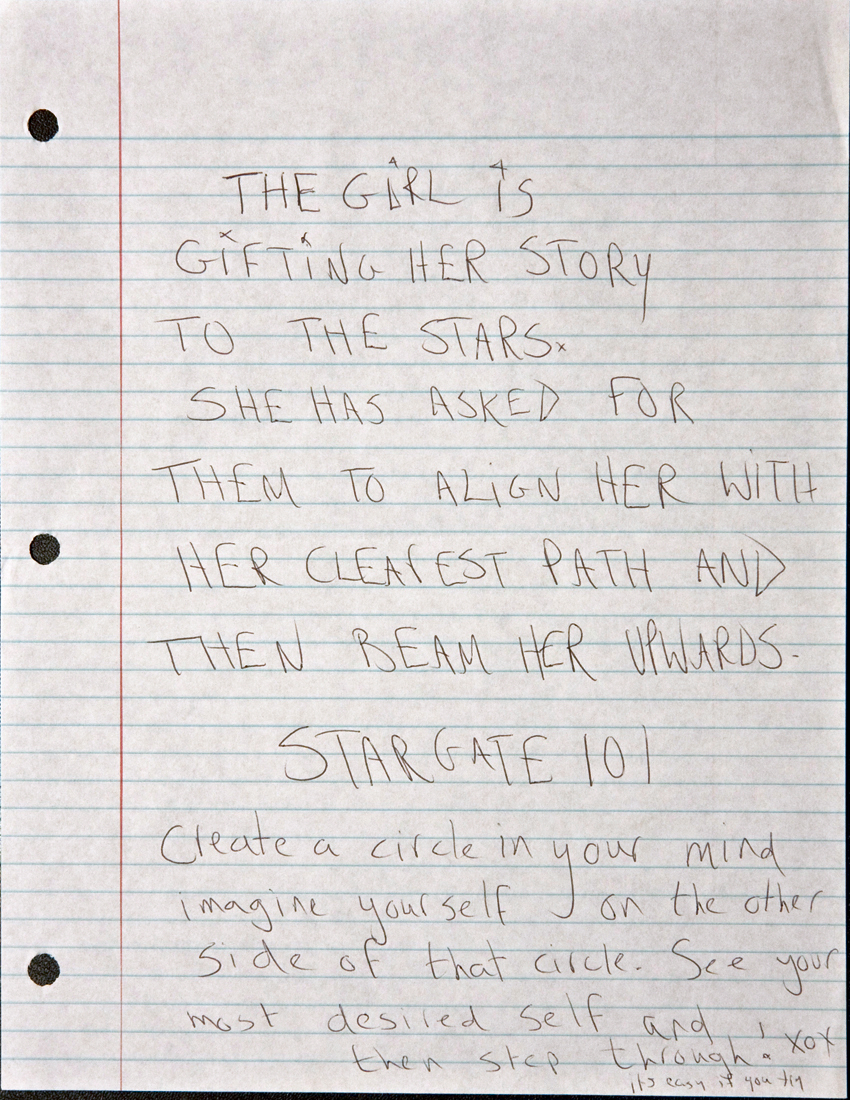 THE GiRL iS
GiFTiNG HER STORY
TO THE STARS.
SHE HAS ASKED FOR
THEM TO ALiGN HER WiTH
HER CLEAREST PATH AND
THEN BEAM HER UPWARDS.
STARGATE 101
Create a circle in your mind
imagine yourself on the other
side of that circle. See your
most desired self and
then step through! xox
it's easy if you try